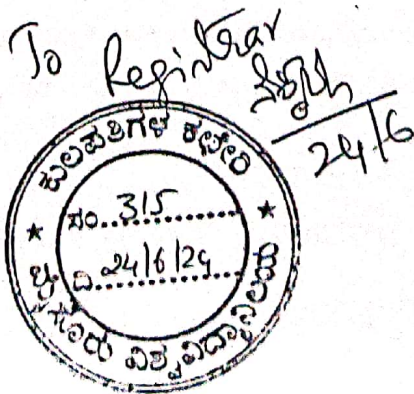 To Registrar
24/6
ಕುಲಪತಿಗಳ ಕಛೇರಿ
★ ಸಂ...315... ★
ದಿ...24/6/24...
ವಿಶ್ವವಿದ್ಯಾನಿಲಯ